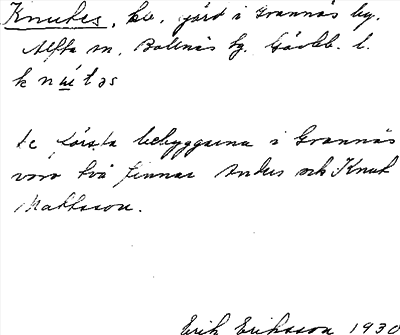 Knutes, kv. gård i Grannäs by.
Alfta sn, Bollnäs tg. Gävlb. l.
knu̲tǝs
de första bebyggarna i Grannäs
voro två finnar Anders och Knut
Mattsson.
Erik Eriksson 1930